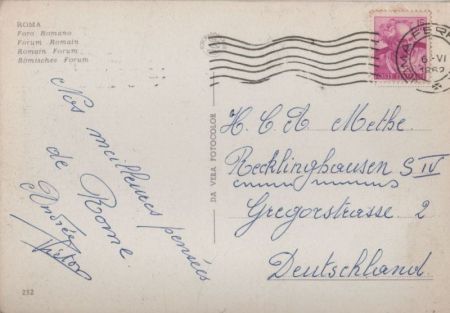 ROMA
Foro Romano
Forum Romain
Roman Forum
Römisches Forum
Nos meilleures pensées
de Rome.
Andrée
DA VERA FOTOCOLOR
ROMA FERR
6-VI
1962
H. C. A. Methe.
Recklinghausen S IV
Gregorstrasse 2
Deutschland.
252